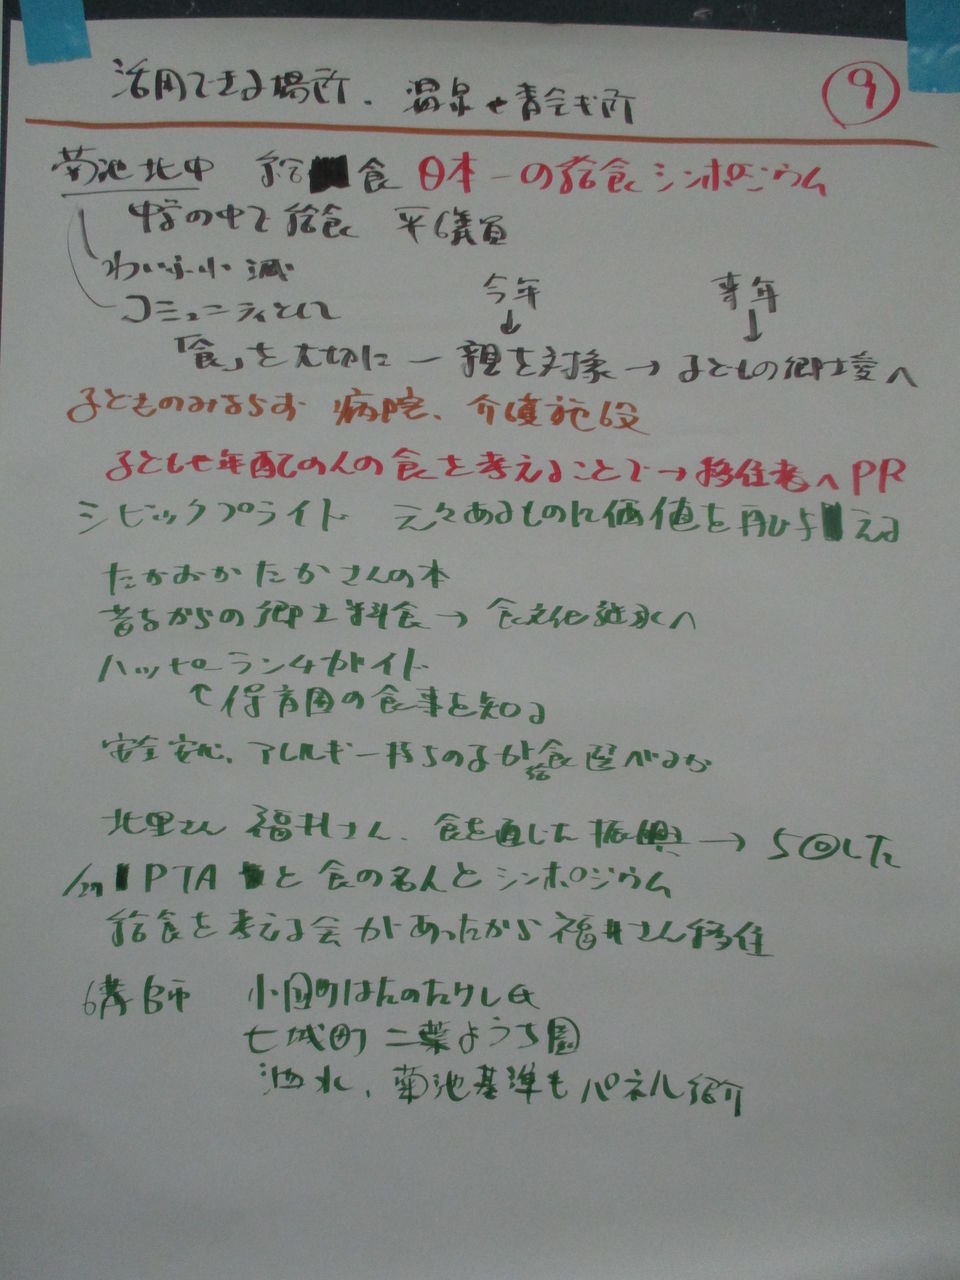 活用できる場所、温泉や青会議所 ⑨
菊池北中 給食 日本一の給食シンポジウム
中学の中で給食 平議員
小減
コミュニティとして 今年 来年
↓ ↓
「食」を大切に ー 親を対象 → 子どもの郷土愛へ
子どものみならず 病院、介護施設
子どもや年配の人の食を考えることで→移住者へPR
シビックプライド 元々あるものに価値を再び与える
たかおかたかさんの本
昔ながらの郷土料食 → 食文化継承へ
ハッピーランチガイド
↑保育園の食事を知る
安全安心、アレルギー持ちの子が給食選べるか
北里さん 福井さん、食を通した振興 → 5回した
PTA と食の名人とシンポジウム
給食を考える会があったから福井さん移住
講師 小国町 氏
七城町 二葉ようち園
泗水、菊池基準もパネル紹介